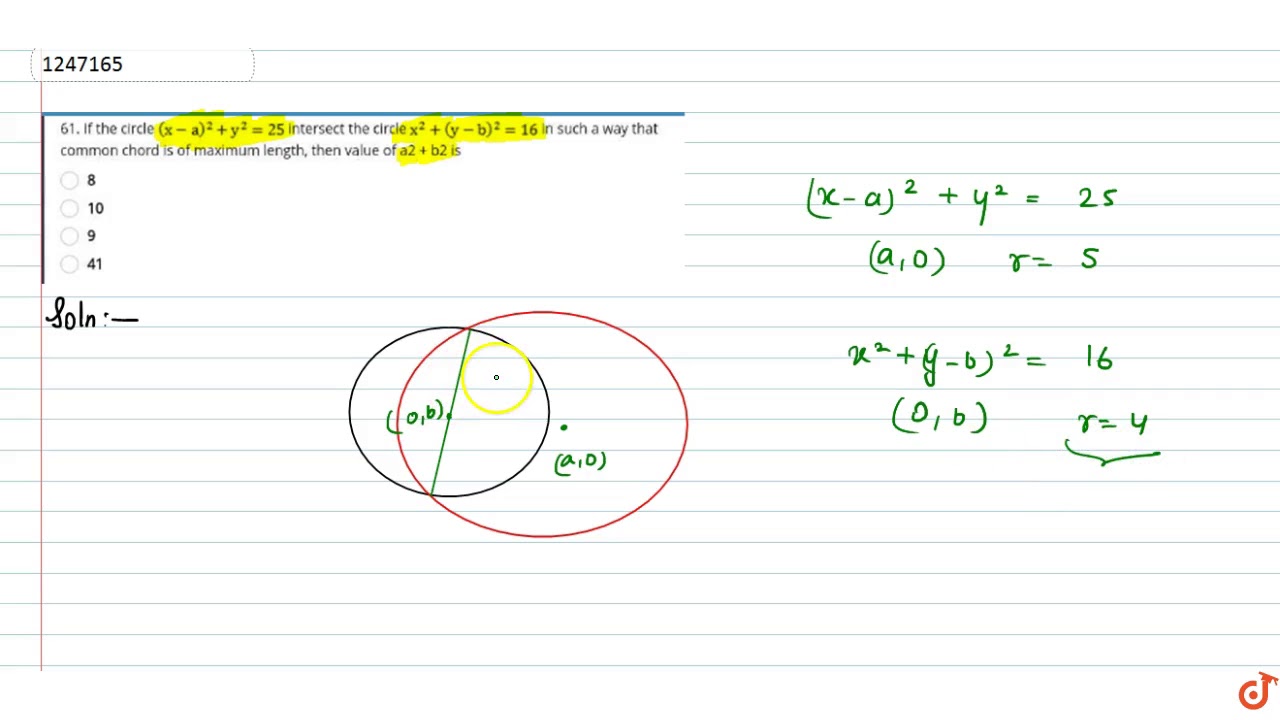 1247165
61. If the circle (x − a)² + y² = 25 intersect the circle x² + (y − b)² = 16 in such a way that
common chord is of maximum length, then value of a2 + b2 is
8
10
9
41
Soln:—
(0,b)
(a,0)
(x-a)² + y² = 25
(a,0) r= 5
x²+(y-b)² = 16
(0,b) r=4